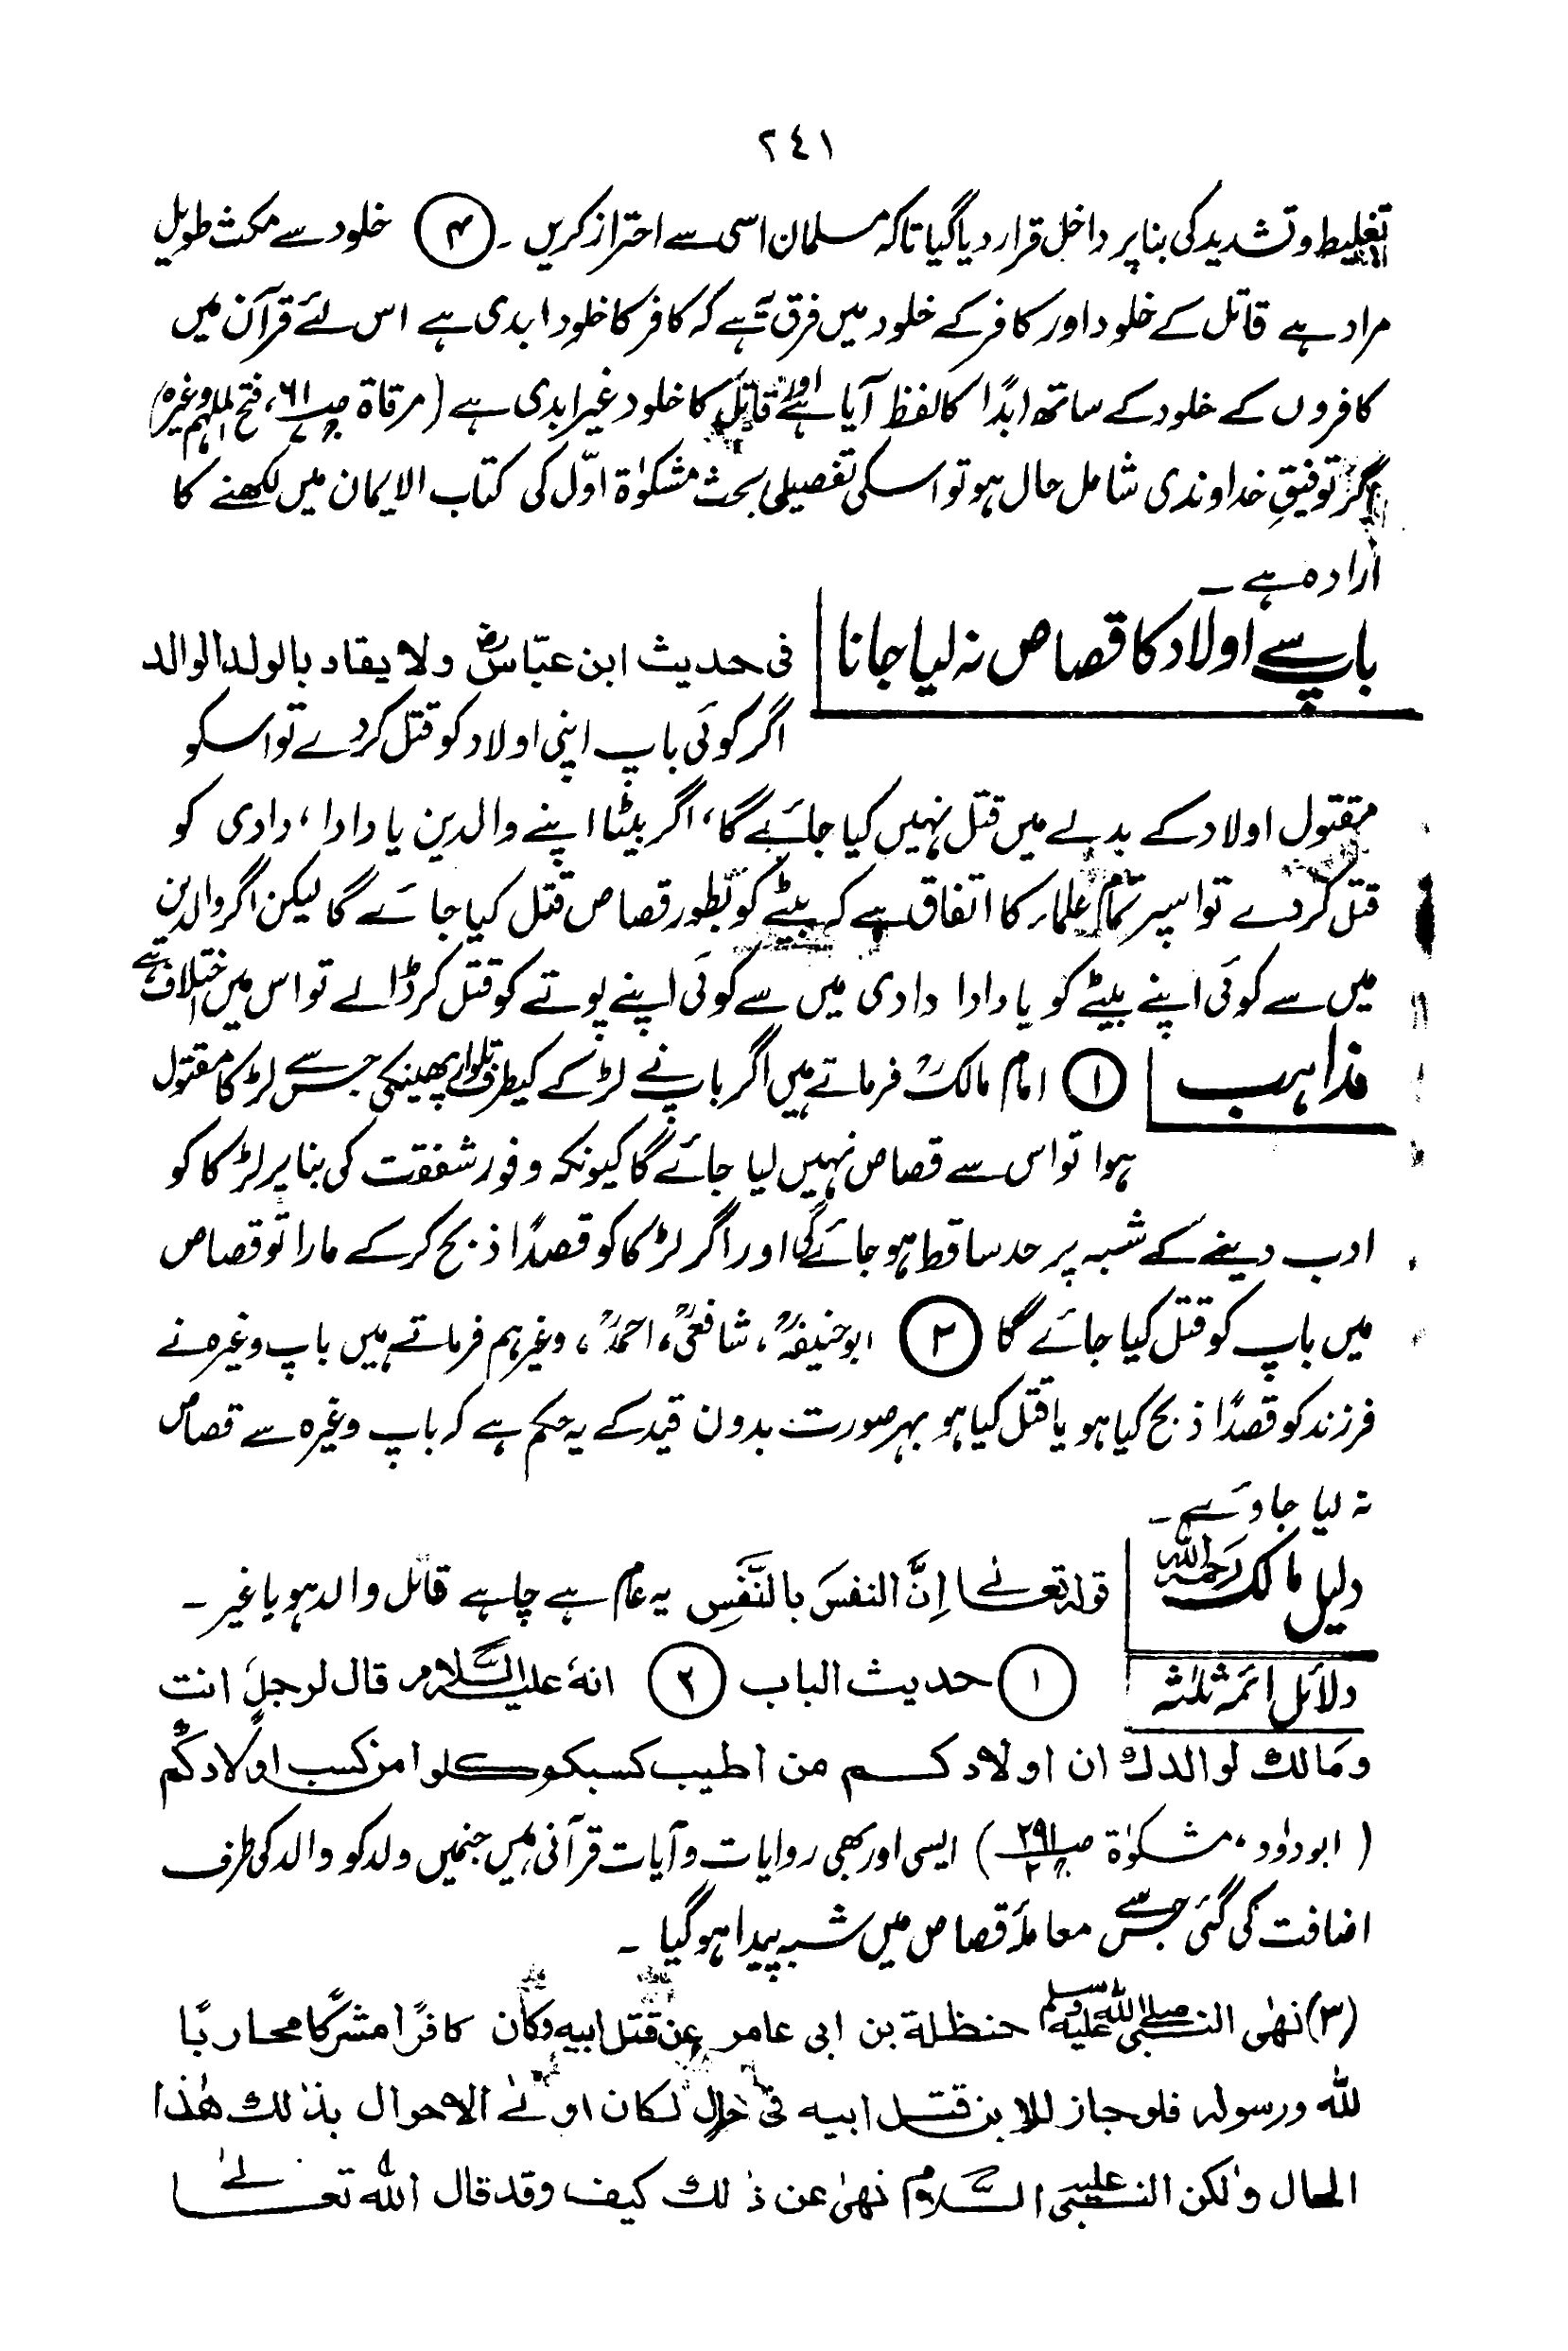 ٢٤١
تغلیط وتشدید کی بنا پر داخل قرار دیا گیا تاکہ مسلمان اسی سے احتراز کریں ۔ (۴) خلود سے مکث طویل
مراد ہے قاتل کے خلود اور کافر کے خلود میں فرق یہ ہے کہ کافر کا خلود ابدی ہے اس لئے قرآن میں
کافروں کے خلود کے ساتھ ابدًا کا لفظ آیا ہے اور قاتل کا خلود غیر ابدی ہے (مرقاۃ ص۶۱، فتح الملہم وغیرہ)
اگر توفیقِ خداوندی شامل حال ہو تو اسکی تفصیلی بحث مشکوٰۃ اوّل کی کتاب الایمان میں لکھنے کا
ارادہ ہے ۔
باپ سے اولاد کا قصاص نہ لیا جانا | فی حدیث ابن عبّاسؓ ولا یقاد بالولد الوالد
اگر کوئی باپ اپنی اولاد کو قتل کردے تو اسکو
مقتول اولاد کے بدلے میں قتل نہیں کیا جائے گا، اگر بیٹا اپنے والدین یا دادا، دادی کو
قتل کردے تو اسپر تمام علماء کا اتفاق ہے کہ بیٹے کو بطور قصاص قتل کیا جائے گا لیکن اگر والدین
میں سے کوئی اپنے بیٹے کو یا دادا دادی میں سے کوئی اپنے پوتے کو قتل کر ڈالے تو اس میں اختلاف ہے
مذاہب | (۱) امام مالکؒ فرماتے ہیں اگر باپ نے لڑکے کیطرف تلوار پھینکی جس سے لڑکا مقتول
ہوا تو اس سے قصاص نہیں لیا جائے گا کیونکہ وفور شفقت کی بنا پر لڑکا کو
ادب دینے کے شبہ پر حد ساقط ہو جائے گی اور اگر لڑکا کو قصدًا ذبح کرکے مارا تو قصاص
میں باپ کو قتل کیا جائے گا (۲) ابوحنیفہؒ، شافعیؒ، احمدؒ، وغیرہم فرماتے ہیں باپ وغیرہ نے
فرزند کو قصدًا ذبح کیا ہو یا قتل کیا ہو بہرصورت بدون قید کے یہ حکم ہے کہ باپ وغیرہ سے قصاص
نہ لیا جاوے ۔
دلیل مالک رحمہ اللہ | قولہ تعالےٰ اِنَّ النفسَ بالنَّفسِ یہ عام ہے چاہے قاتل والد ہو یا غیر ۔
دلائل ائمہ ثلٰثہ | (۱) حدیث الباب (۲) انہ علیہ السّلام قال لرجلٍ انت
ومالك لوالدك ان اولادکم من اطیب کسبکم کلوا من کسب اولادکم
(ابوداؤد، مشکوٰۃ ص۲۹۱ ج۲) ایسی اور بھی روایات وآیات قرآنی ہیں جنمیں ولد کو والد کی طرف
اضافت کی گئی جس سے معاملۂ قصاص میں شبہ پیدا ہوگیا ۔
(۳) نھٰی النبی صلی اللہ علیہ وسلم حنظلة بن ابی عامر عن قتل ابیه وکان کافرًا مشرکًا محاربًا
للّٰہ ورسولہ فلو جاز للابن قتل ابیه فی حال لکان اولیٰ الاحوال بذٰلك ھٰذا
الحال ولٰکن النبی علیہ السّلام نھیٰ عن ذٰلك کیف وقد قال اللہ تعالیٰ